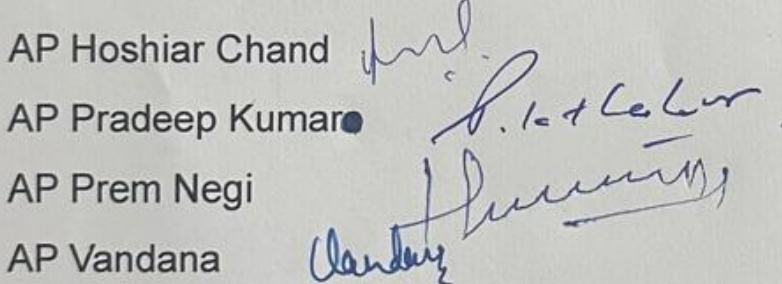 AP Hoshiar Chand
AP Pradeep Kumar
AP Prem Negi
AP Vandana Vandana